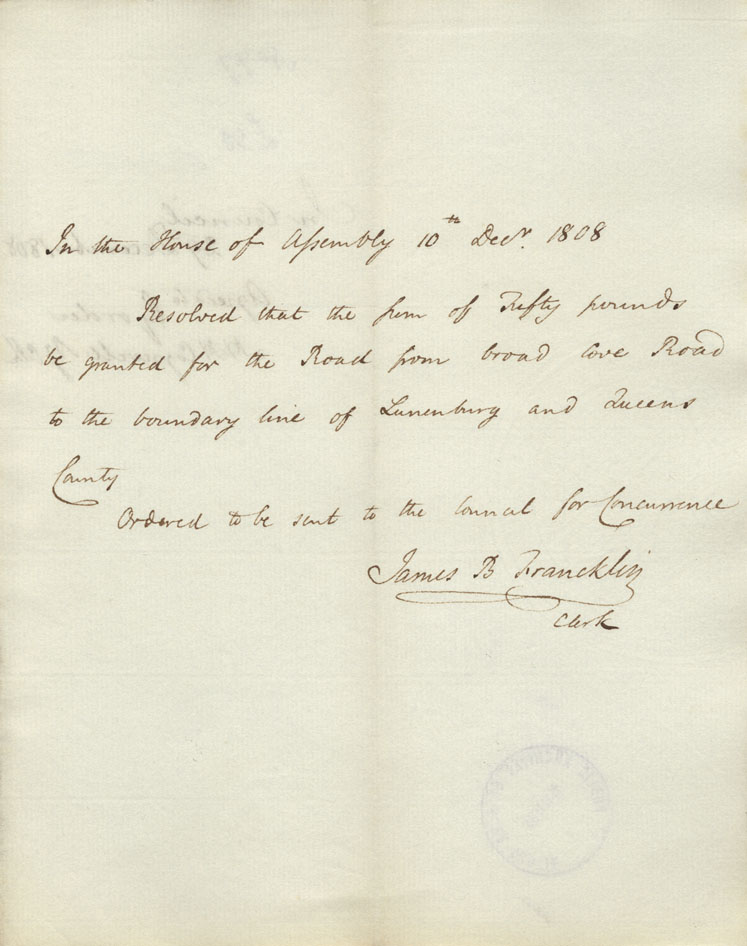 In the House of Assembly 10th Decr. 1808
Resolved that the sum of Fifty pounds
be granted for the Road from broad cove Road
to the boundary line of Lunenburg and Queens
County
Ordered to be sent to the Council for Concurrence
James B Francklin
Clerk